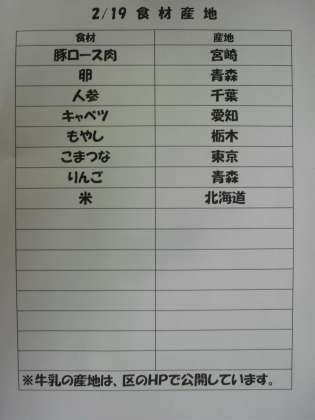 2/19 食材産地
食材 産地
豚ロース肉 宮崎
卵 青森
人参 千葉
キャベツ 愛知
もやし 栃木
こまつな 東京
りんご 青森
米 北海道
※牛乳の産地は、区のHPで公開しています。